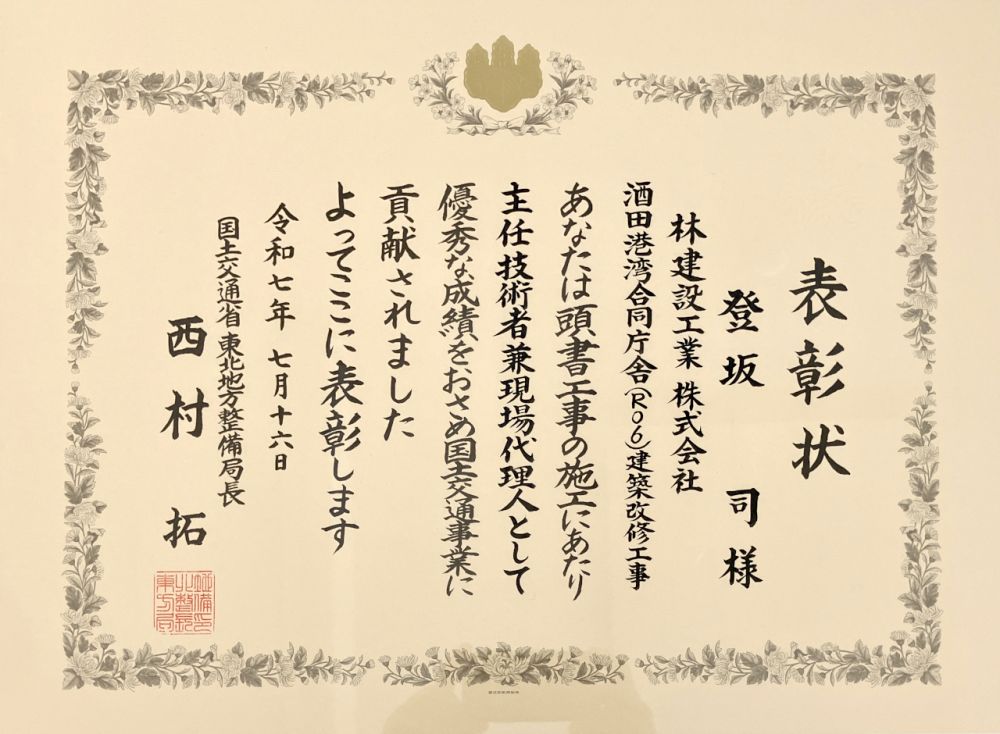 表彰状
登坂 司様
林建設工業 株式会社
酒田港湾合同庁舎(R06)建築改修工事
あなたは頭書工事の施工にあたり
主任技術者兼現場代理人として
優秀な成績をおさめ国土交通事業に
貢献されました
よってここに表彰します
令和七年 七月十六日
国土交通省 東北地方整備局長
西村 拓